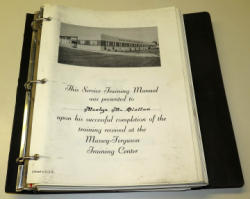 This Service Training Manual
was presented to
upon his successful completion of the
training received at the
Massey-Ferguson
Training Center